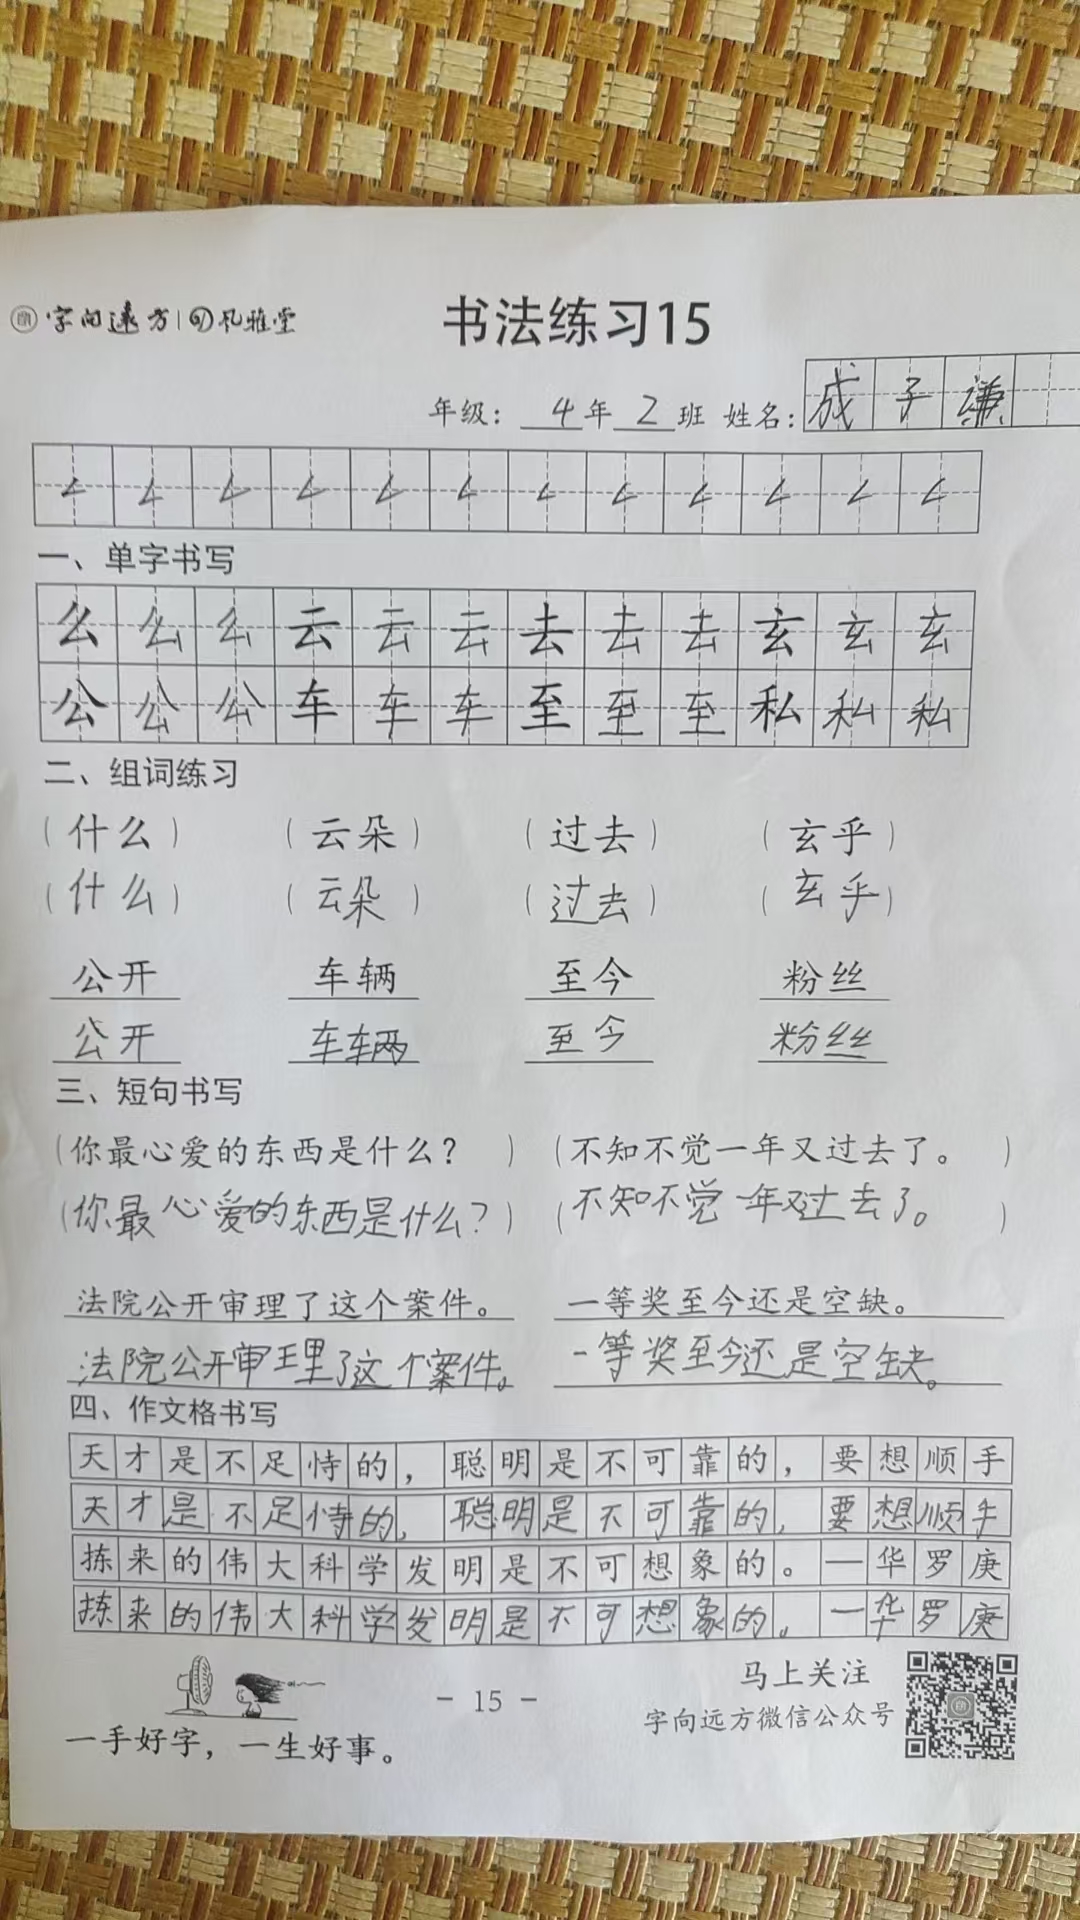 字向远方 风雅堂
书法练习15
年级: 4年2班 姓名: 成子谦
𠃋𠃋𠃋𠃋𠃋𠃋𠃋𠃋𠃋𠃋𠃋𠃋
一、单字书写
么么么云云云去去去玄玄玄
公公公车车车至至至私私私
二、组词练习
(什么) (云朵) (过去) (玄乎)
(什么) (云朵) (过去) (玄乎)
公开 车辆 至今 粉丝
公开 车辆 至今 粉丝
三、短句书写
(你最心爱的东西是什么? ) (不知不觉一年又过去了。 )
(你最心爱的东西是什么?) (不知不觉一年又过去了。 )
法院公开审理了这个案件。 一等奖至今还是空缺。
法院公开审理了这个案件。 一等奖至今还是空缺。
四、作文格书写
天才是不足恃的，聪明是不可靠的，要想顺手
天才是不足恃的，聪明是不可靠的，要想顺手
拣来的伟大科学发明是不可想象的。—华罗庚
拣来的伟大科学发明是不可想象的。—华罗庚
马上关注
- 15 -
字向远方微信公众号
一手好字，一生好事。